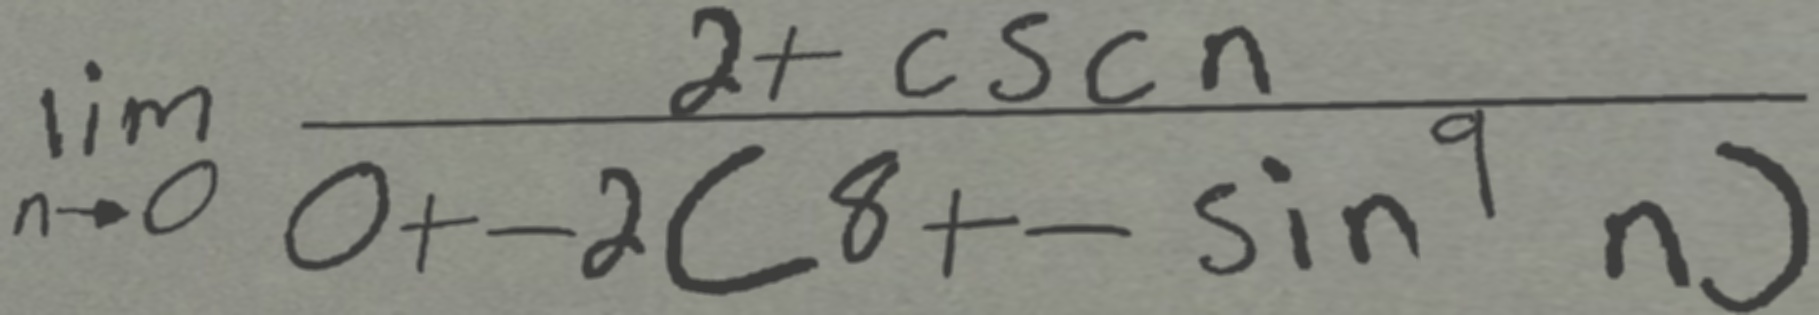 \lim_{n \to 0} \frac{2 + \csc n}{0 + -2(8 + -\sin^9 n)}